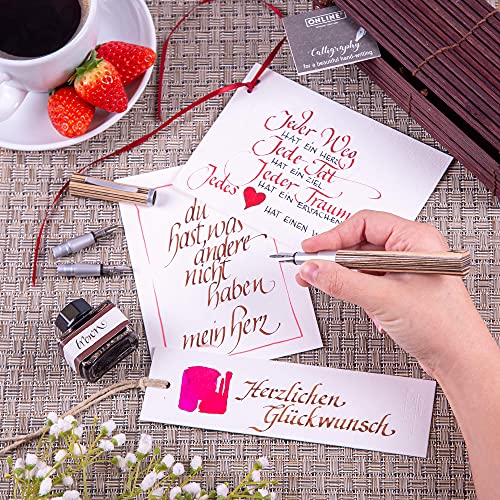 ONLINE
Calligraphy
for a beautiful hand-writing
Jeder Weg
HAT EIN HERZ
Jede Tat
HAT EIN ZIEL
Jeder Traum
HAT EIN ERWACHEN
Jedes
HAT EINEN
du
hast, was
andere
nicht
haben
mein Herz
Herzlichen
Glückwunsch